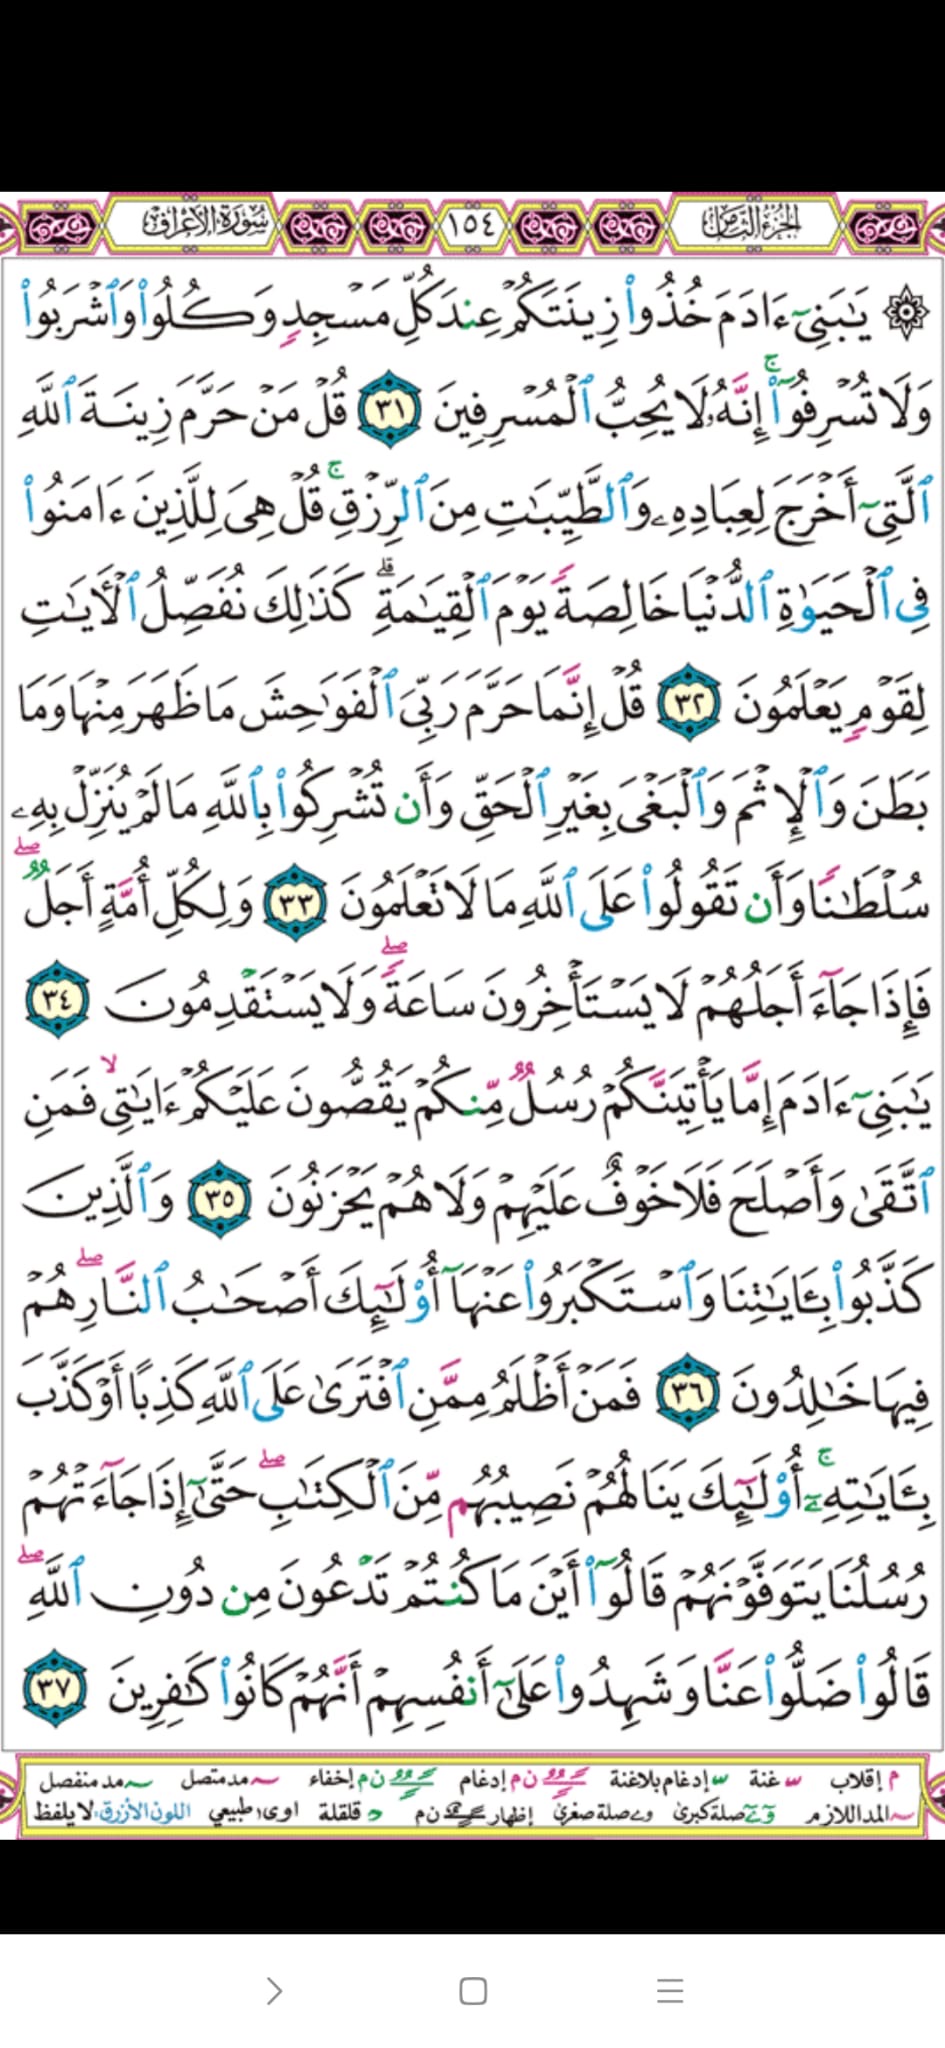 الجزء الثامن
١٥٤
سورة الأعراف
۞ يَـٰبَنِىٓ ءَادَمَ خُذُوا۟ زِينَتَكُمْ عِندَ كُلِّ مَسْجِدٍ وَكُلُوا۟ وَٱشْرَبُوا۟
وَلَا تُسْرِفُوٓا۟ ۚ إِنَّهُۥ لَا يُحِبُّ ٱلْمُسْرِفِينَ ٣١ قُلْ مَنْ حَرَّمَ زِينَةَ ٱللَّهِ
ٱلَّتِىٓ أَخْرَجَ لِعِبَادِهِۦ وَٱلطَّيِّبَـٰتِ مِنَ ٱلرِّزْقِ ۚ قُلْ هِىَ لِلَّذِينَ ءَامَنُوا۟
فِى ٱلْحَيَوٰةِ ٱلدُّنْيَا خَالِصَةً يَوْمَ ٱلْقِيَـٰمَةِ ۗ كَذَٰلِكَ نُفَصِّلُ ٱلْـَٔايَـٰتِ
لِقَوْمٍ يَعْلَمُونَ ٣٢ قُلْ إِنَّمَا حَرَّمَ رَبِّىَ ٱلْفَوَٰحِشَ مَا ظَهَرَ مِنْهَا وَمَا
بَطَنَ وَٱلْإِثْمَ وَٱلْبَغْىَ بِغَيْرِ ٱلْحَقِّ وَأَن تُشْرِكُوا۟ بِٱللَّهِ مَا لَمْ يُنَزِّلْ بِهِۦ
سُلْطَـٰنًا وَأَن تَقُولُوا۟ عَلَى ٱللَّهِ مَا لَا تَعْلَمُونَ ٣٣ وَلِكُلِّ أُمَّةٍ أَجَلٌ ۖ
فَإِذَا جَآءَ أَجَلُهُمْ لَا يَسْتَأْخِرُونَ سَاعَةً ۖ وَلَا يَسْتَقْدِمُونَ ٣٤
يَـٰبَنِىٓ ءَادَمَ إِمَّا يَأْتِيَنَّكُمْ رُسُلٌ مِّنكُمْ يَقُصُّونَ عَلَيْكُمْ ءَايَـٰتِى ۙ فَمَنِ
ٱتَّقَىٰ وَأَصْلَحَ فَلَا خَوْفٌ عَلَيْهِمْ وَلَا هُمْ يَحْزَنُونَ ٣٥ وَٱلَّذِينَ
كَذَّبُوا۟ بِـَٔايَـٰتِنَا وَٱسْتَكْبَرُوا۟ عَنْهَآ أُو۟لَـٰٓئِكَ أَصْحَـٰبُ ٱلنَّارِ ۖ هُمْ
فِيهَا خَـٰلِدُونَ ٣٦ فَمَنْ أَظْلَمُ مِمَّنِ ٱفْتَرَىٰ عَلَى ٱللَّهِ كَذِبًا أَوْ كَذَّبَ
بِـَٔايَـٰتِهِۦٓ ۚ أُو۟لَـٰٓئِكَ يَنَالُهُمْ نَصِيبُهُم مِّنَ ٱلْكِتَـٰبِ ۖ حَتَّىٰٓ إِذَا جَآءَتْهُمْ
رُسُلُنَا يَتَوَفَّوْنَهُمْ قَالُوٓا۟ أَيْنَ مَا كُنتُمْ تَدْعُونَ مِن دُونِ ٱللَّهِ ۖ
قَالُوا۟ ضَلُّوا۟ عَنَّا وَشَهِدُوا۟ عَلَىٰٓ أَنفُسِهِمْ أَنَّهُمْ كَانُوا۟ كَـٰفِرِينَ ٣٧
م إقلاب غنة إدغام بلاغنة ن م إدغام ن م إخفاء مد متصل مد منفصل
المد اللازم صلة كبرى صلة صغرى إظهار ن م قلقلة اوى طبيعي اللون الأزرق: لا يلفظ